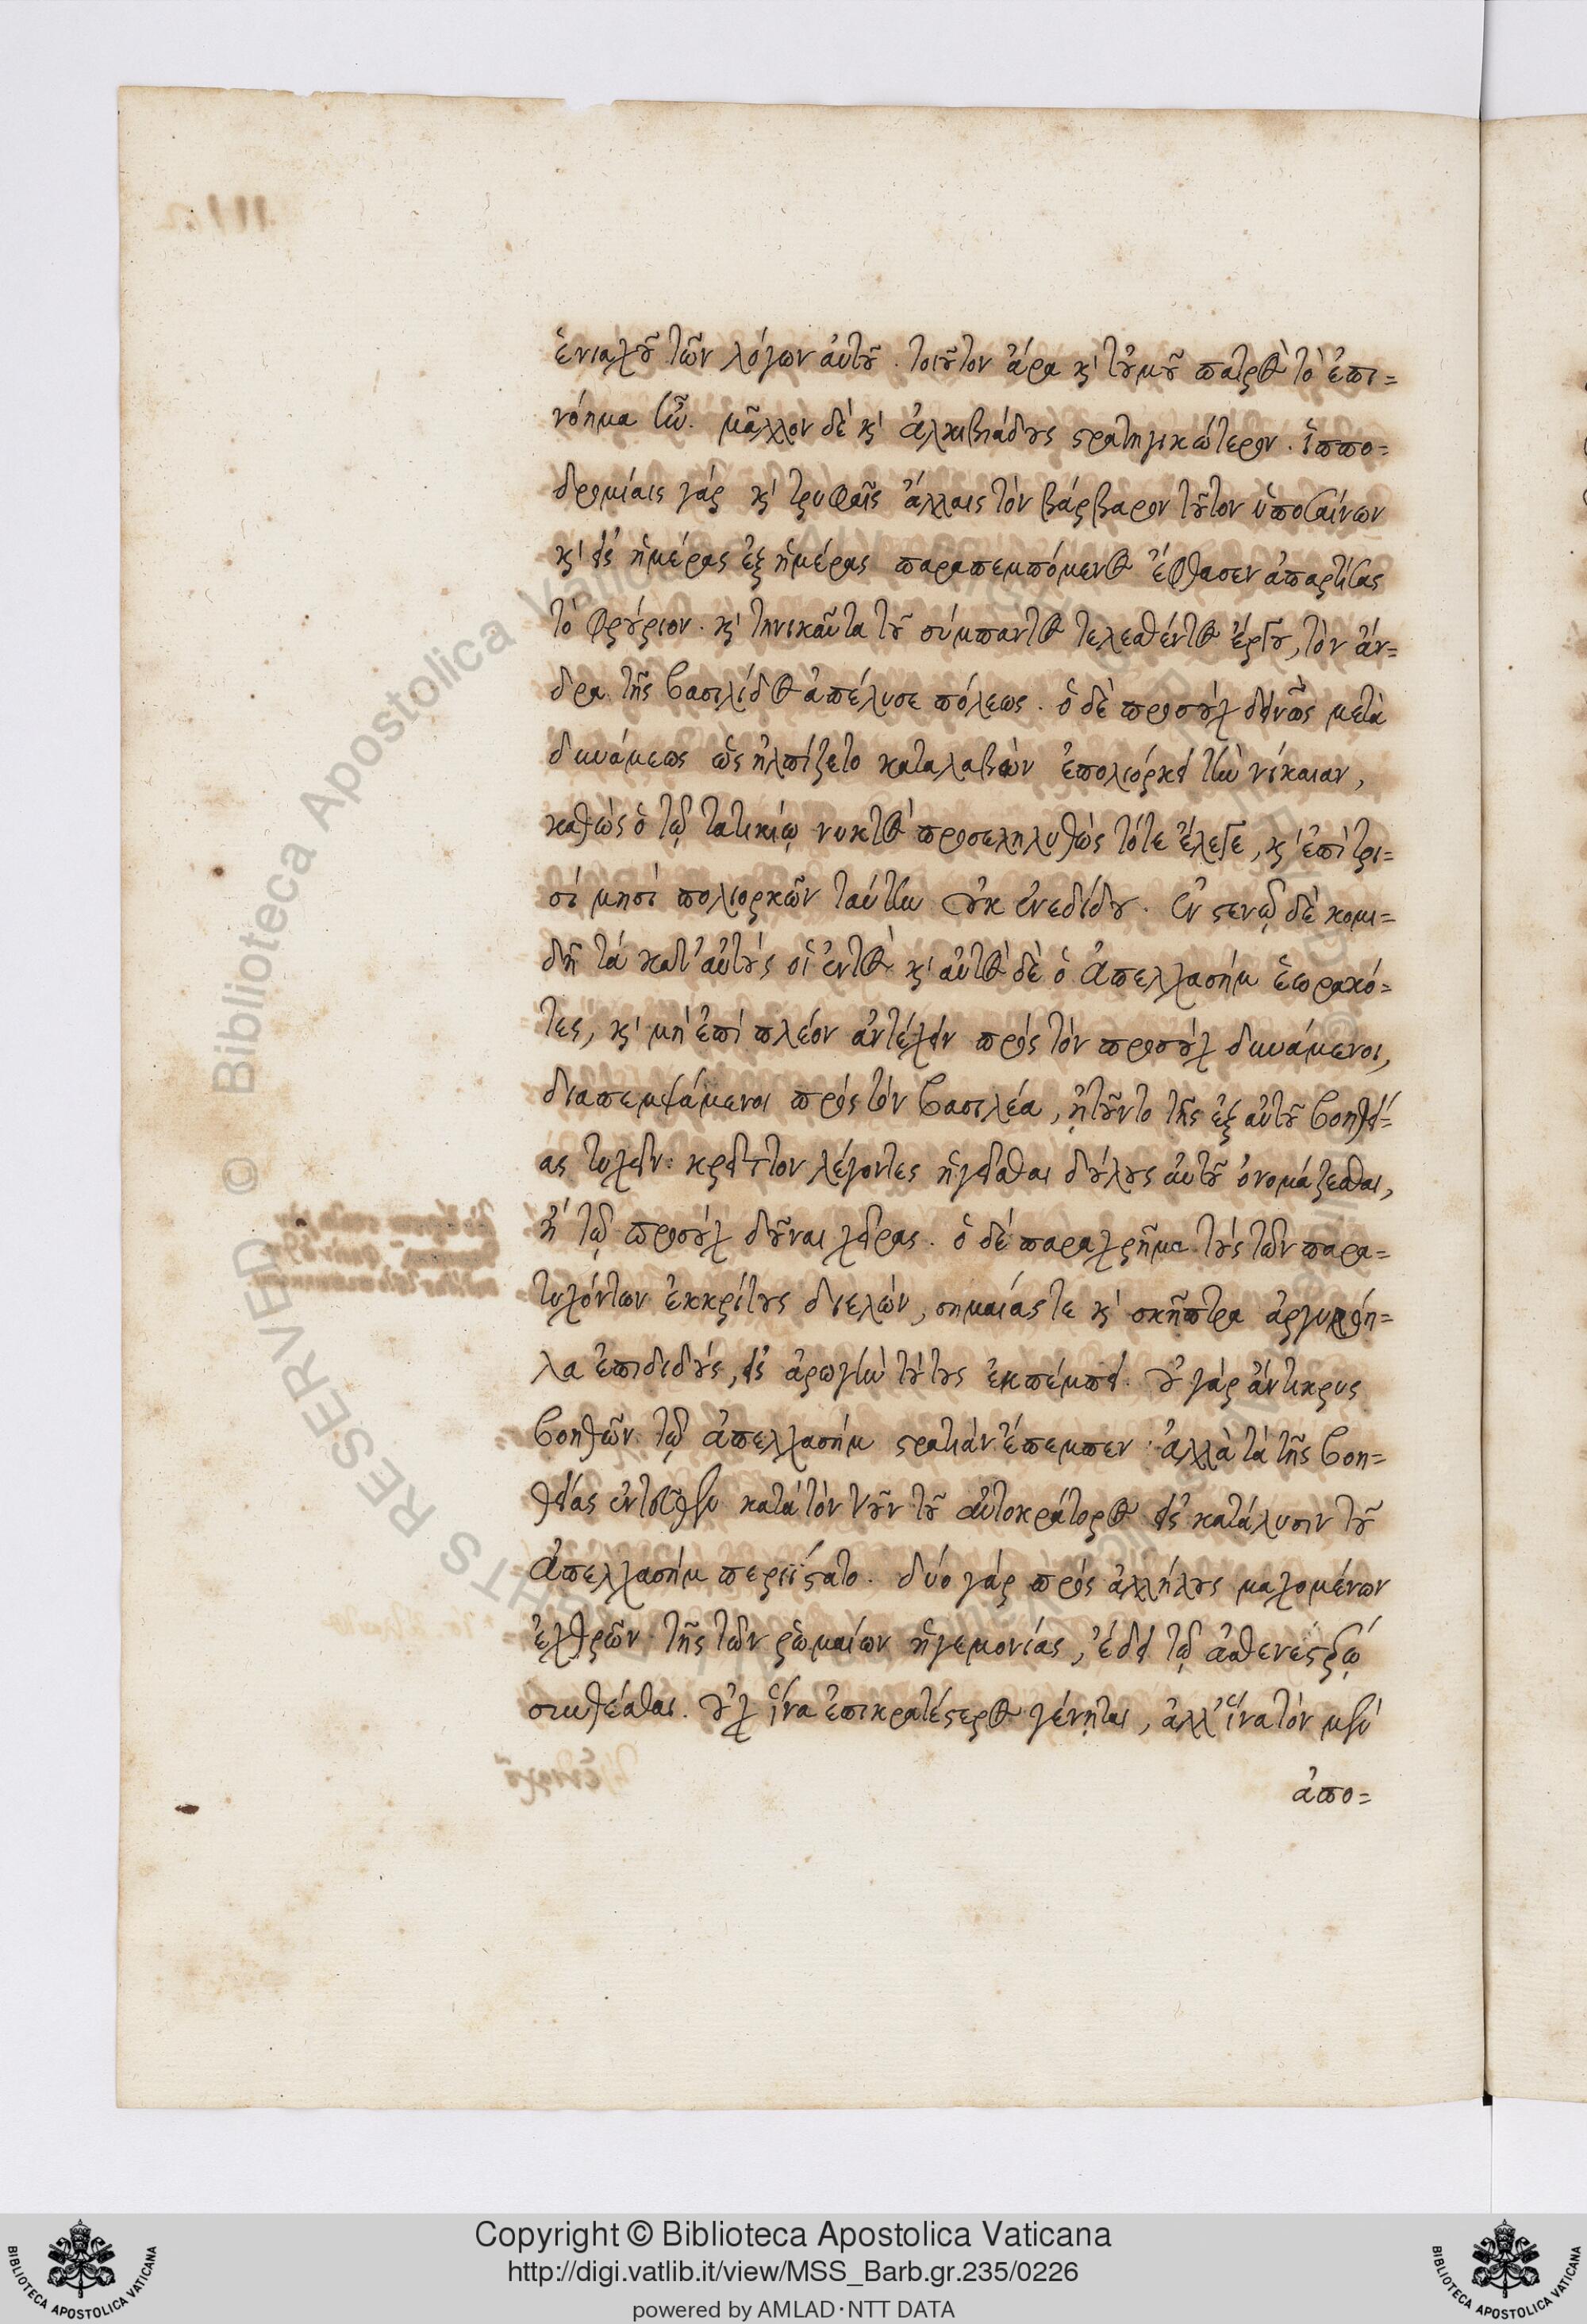 ἐνιαχοῦ τῶν λόγων αὐτοῦ. τοιοῦτον ἄρα κ' τοὐμοῦ πατρὸς τὸ ἐπι=
νόημα ἦν. μᾶλλον δὲ κ' ἀλκιβιάδους στρατηγικώτερον. ἱππο=
δρομίαις γάρ κ' τρυφαῖς ἄλλαις τὸν βάρβαρον τοῦτον ὑποσαίνων
κ' εἰς ἡμέρας ἐξ ἡμέρας παραπεμπόμενος ἔφθασεν ἀπαρτίσας
τὸ φρούριον. κ' τηνικαῦτα τοῦ σύμπαντος τελεσθέντος ἔργου, τὸν ἄν=
δρα τῆς βασιλίδος ἀπέλυσε πόλεως. ὁ δὲ προσοὺχ δεινῶς μετὰ
δυνάμεως ὡς ἠλπίζετο καταλαβὼν ἐπολιόρκει τὴν νίκαιαν,
καθὼς ὁ τῷ τατικίῳ νυκτὸς προσεληλυθὼς τότε ἔλεγε, κ' ἐπὶ τρι=
σί μησί πολιορκῶν ταύτην οὐκ ἐνεδίδου. ἐν στενῷ δὲ κομι=
δῆ τὰ κατ' αὐτοὺς οἱ ἐντὸς κ' αὐτὸς δὲ ὁ ἀπελχασήμ ἑωρακό=
τες, κ' μὴ ἐπὶ πλέον ἀντέχειν πρὸς τὸν προσοὺχ δυνάμενοι,
διαπεμψάμενοι πρὸς τὸν βασιλέα, ᾐτοῦντο τῆς ἐξ αὐτοῦ βοηθεί=
ας τυχεῖν. κρεῖττον λέγοντες ἡγεῖσθαι δούλους αὐτοῦ ὀνομάζεσθαι,
ἢ τῷ προσοὺχ δοῦναι χεῖρας. ὁ δὲ παραχρῆμα τοὺς τῶν παρα=
τυχόντων ἐκκρίτους διελὼν, σημαίας τε κ' σκῆπτρα ἀργυρόη=
λα ἐπιδιδοὺς, εἰς ἀρωγὴν τούτους ἐκπέμπει. οὐ γὰρ ἄντικρυς
βοηθῶν τῷ ἀπελχασήμ στρατιὰν ἔπεμπεν. ἀλλὰ τὰ τῆς βοη=
θείας ἐντεῦθεν κατὰ τὸν νοῦν τοῦ αὐτοκράτορος εἰς κατάλυσιν τοῦ
ἀπελχασήμ περιΐστατο. δύο γὰρ πρὸς ἀλλήλους μαχομένων
ἐχθρῶν τῆς τῶν ῥωμαίων ἡγεμονίας, ἔδει τῷ ἀσθενεστέρῳ
συνθέσθαι. οὐχ ἵνα ἐπικρατέστερος γένηται, ἀλλ' ἵνα τὸν μὲν
ἀπο=
Copyright © Biblioteca Apostolica Vaticana
http://digi.vatlib.it/view/MSS_Barb.gr.235/0226
powered by AMLAD·NTT DATA